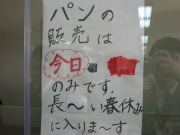 パンの
販売は
今日
のみです.
長～い春休み
に入りま～す